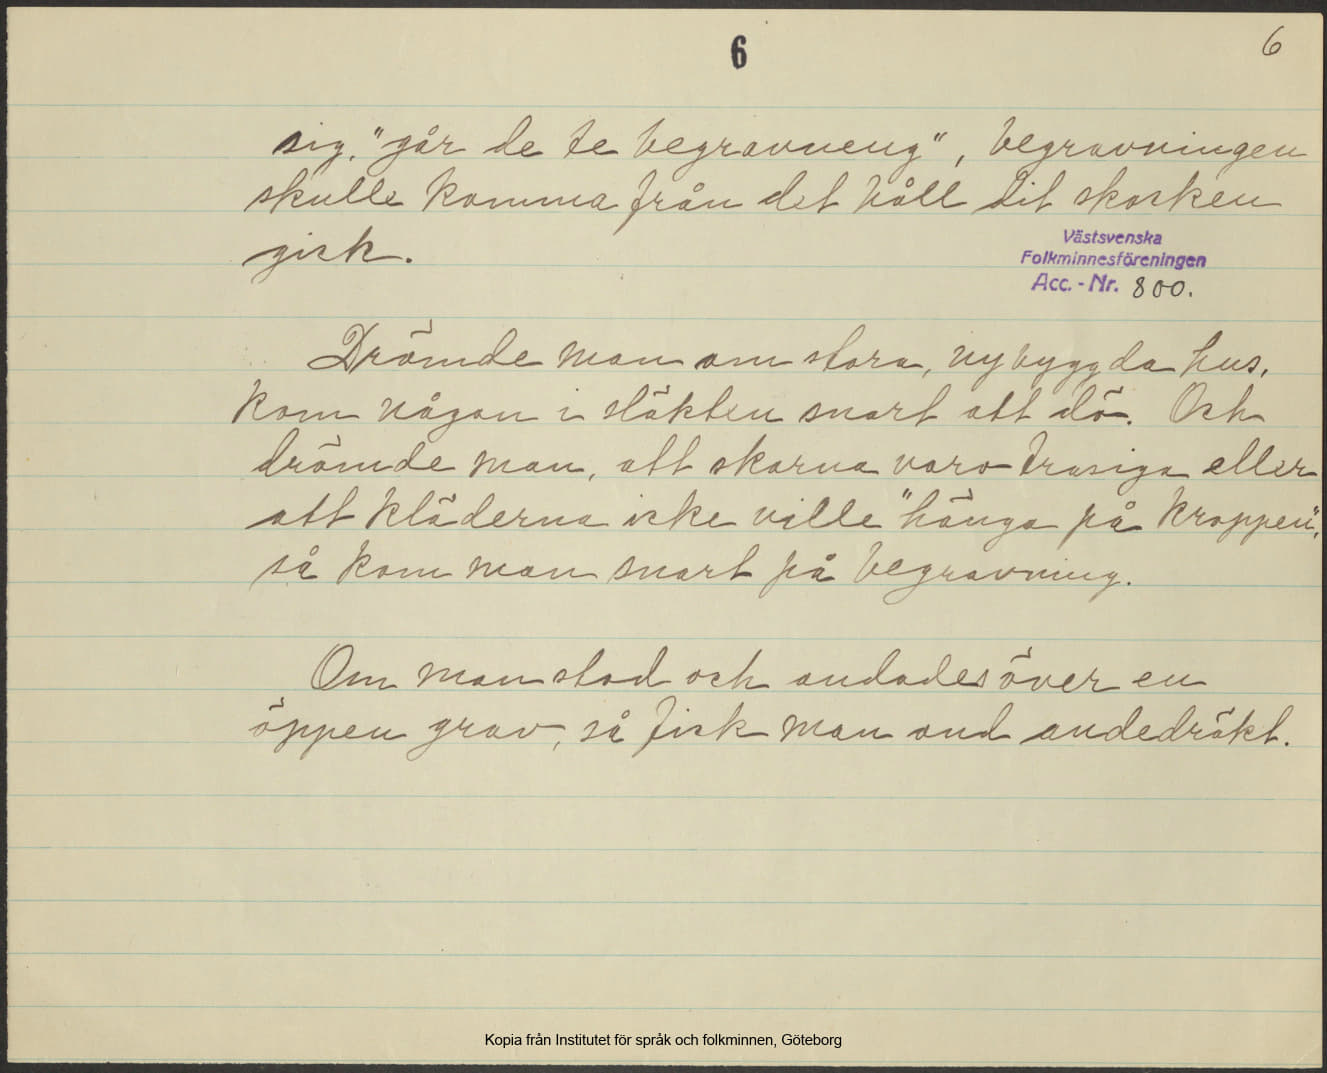 6
6
sig, "går de te begravneng", begravningen
skulle komma från det håll dit skocken
gick.
Västsvenska
Folkminnesföreningen
Acc. - Nr. 800.
Drömde man om stora, nybyggda hus,
kom någon i släkten snart att dö. Och
drömde man, att skorna voro trasiga eller
att kläderna icke ville "hänga på kroppen",
så kom man snart på begravning.
Om man stod och andades över en
öppen grav, så fick man ond andedräkt.
Kopia från Institutet för språk och folkminnen, Göteborg